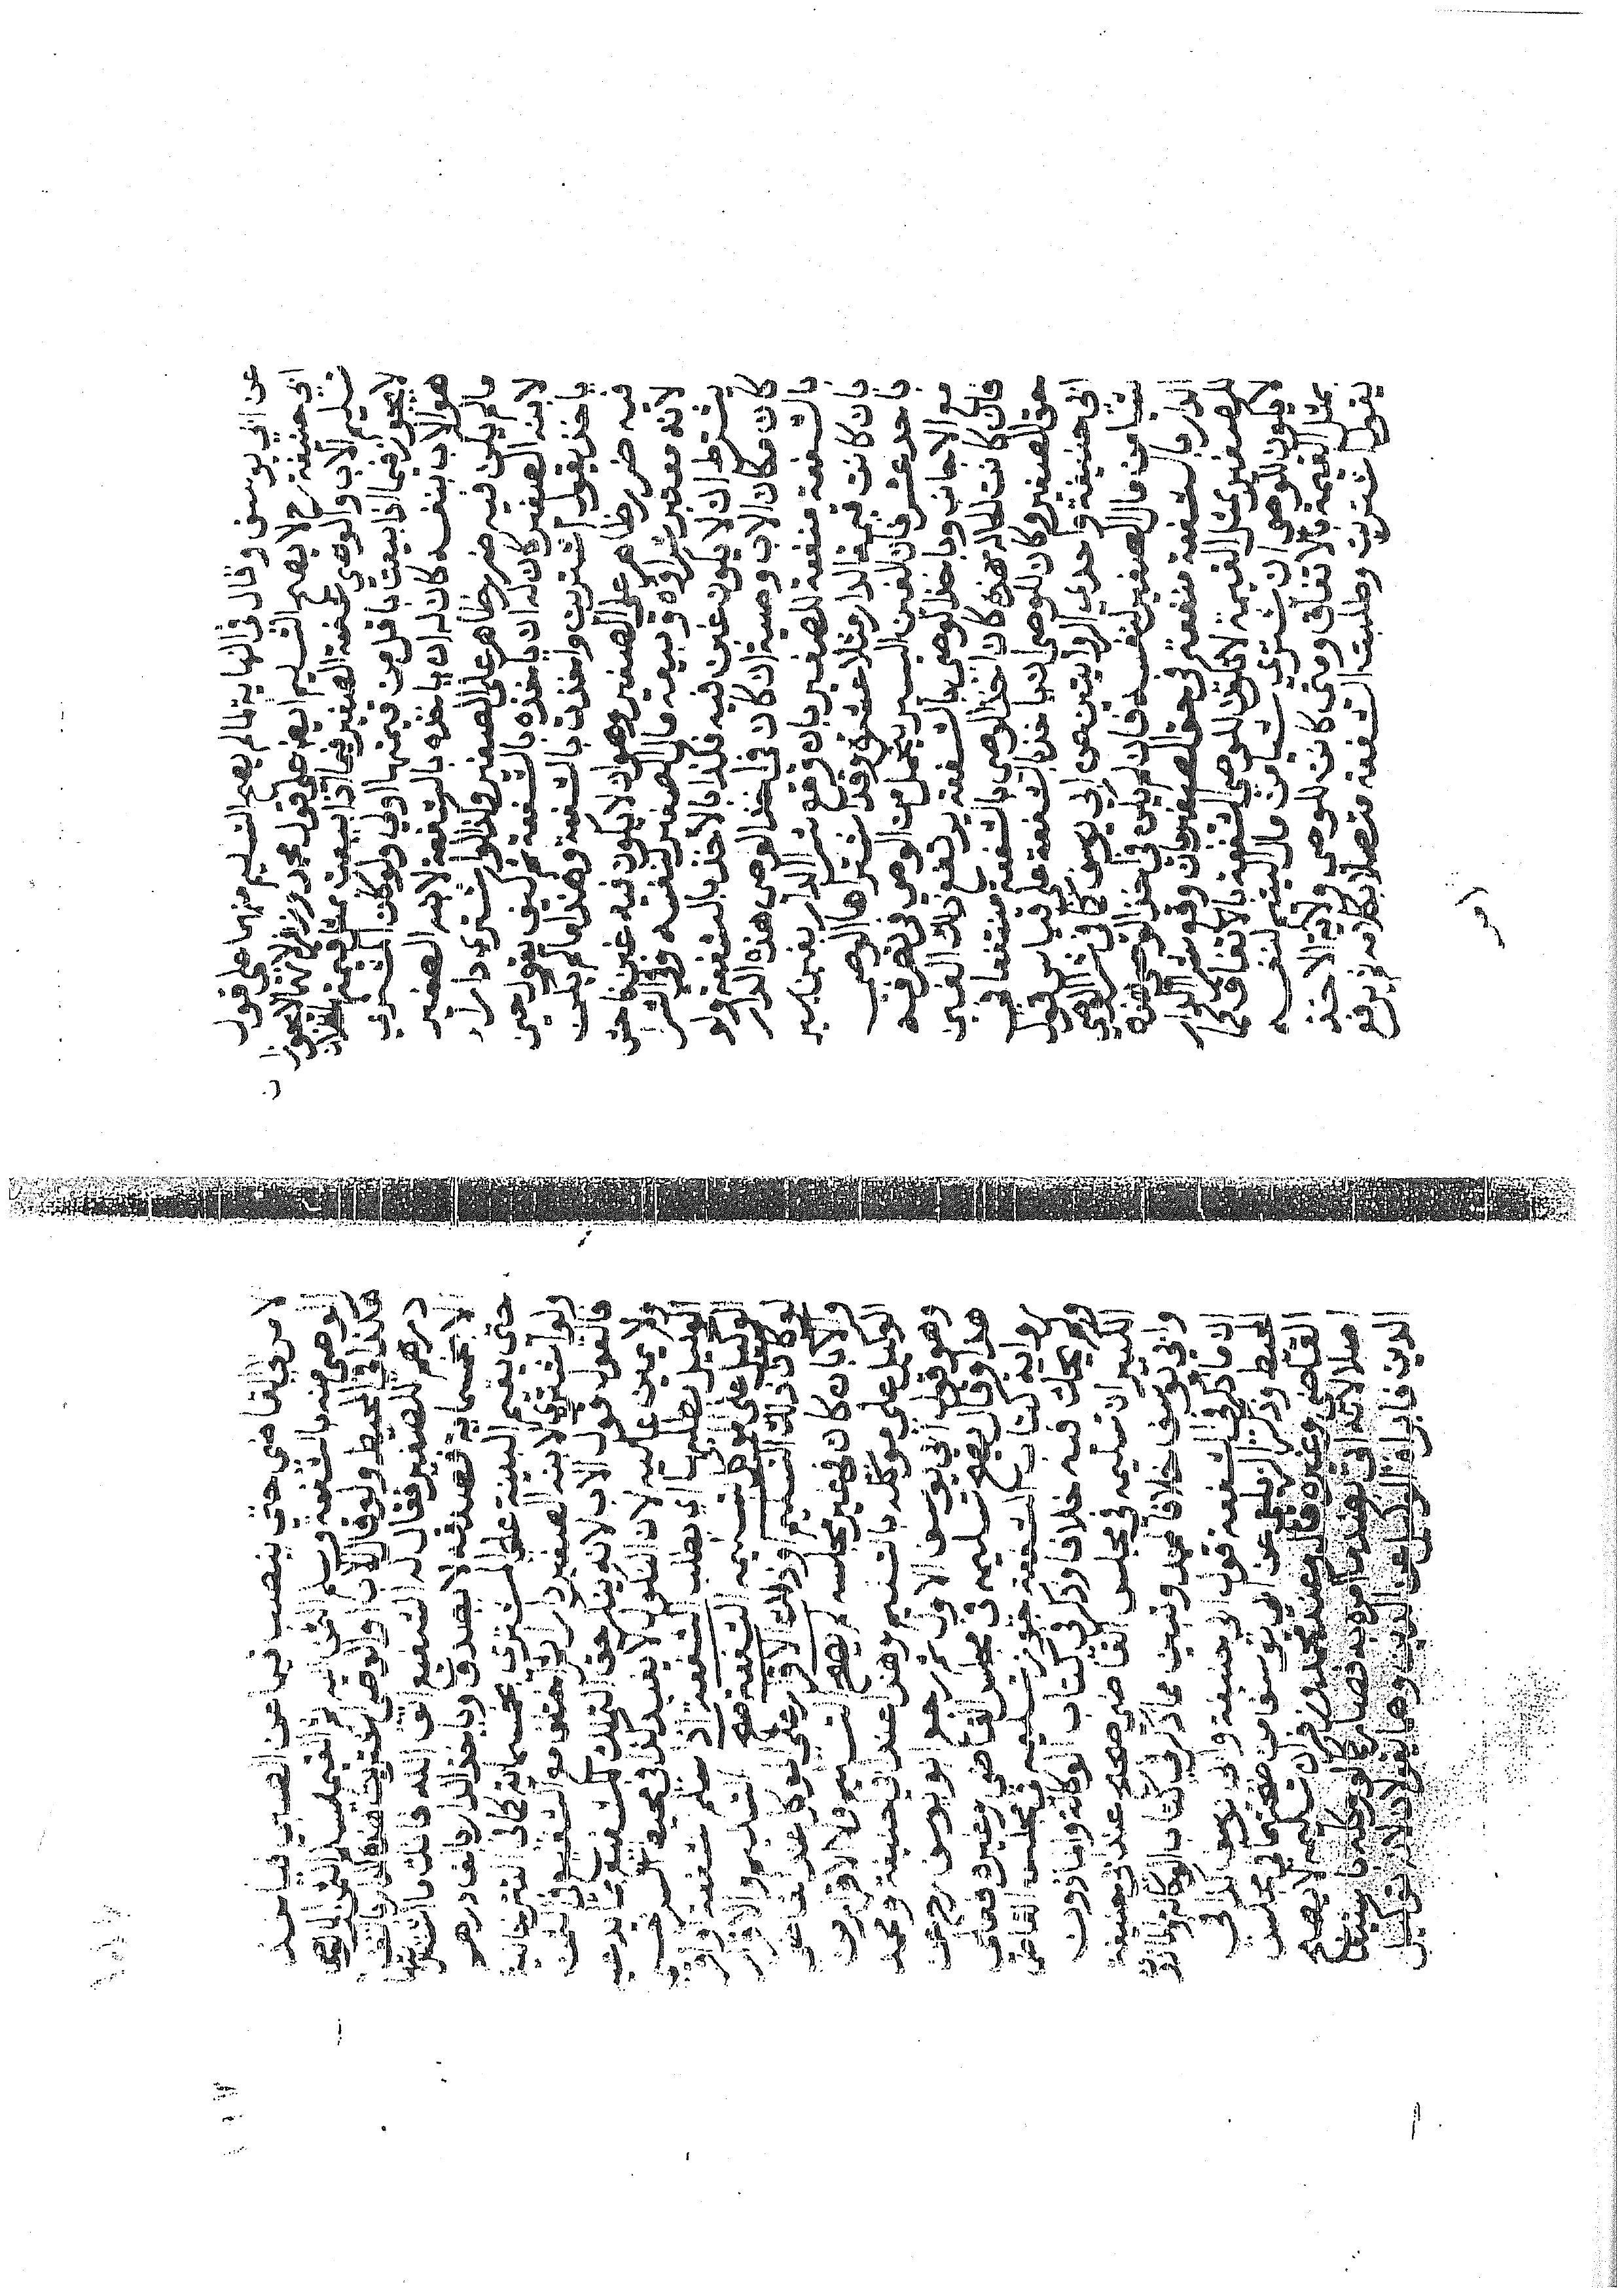 عن ابي يوسف وقال في النهاية لما لم يصح التسليم منهما على قول
ابي حنيفة رح لا يصح التسليم ايضا على قول محمد وزفر لانه لا يجوز
تسليم الاب والوصي شفعة الصغير فيما اذا بيعت بمثل قيمتها فلان
لا يجوز فيما اذا بيعت باقل من قيمتها اولي ولو كان المشتري
هو الاب بنفسه كان له ان ياخذه بالشفعة لابنه الصغير
ما لم يكن فيه ضرر ظاهر على الصغير وكذا لو اشتري دارا
لابنه الصغير كان له ان ياخذه بالشفعة ثم كيف يقول حين
ياخذ يقول اشتريت واخذت بالشفعة وهذا ما لم يكن
فيه ضرر ظاهر على الصغير وهو ان لا يكون فيه غبن فاحش
لانه معتبر بشراؤه وبيعه مال الصغير لنفسه وفي الشرا
يشترط ان لا يكون غبن فيه فكذا بالاخذ بالشفعة ولو
كان مكان الاب وصيا ان كان في اخذ الوصي هذه الدار
بالشفعة منفعة للصغير بان وقع شرا الدار بغبن يسير
بان كانت قيمة الدار مثلا عشرة وقد اشتراها الوصي
باحد عشر فان الغبن اليسير يتحمل من الوصي في تصرفه
مع الاجانب وباخذ الوصي بالشفعة يرتفع ذلك الغبن
فان كانت الحالة هذه كان اخذ الوصي بالشفعة منتفعا في
حق الصغير وكان للوصي ان ياخذ بالشفعة على قياس قول
ابي حنيفة واحدي الروايتين عن ابي يوسف كما في شرا الوصي
شيا من مال الصغير لنفسه فان لم يكن في اخذ الوصي هذه
الدار بالشفعة منفعة في حق الصغير بان وقع شرا الدار
للصغير بمثل القيمة لا يكون للوصي الشفعة بالاتفاق كما
لا يكون للوصي ان يشتري شيا من مال اليتيم لنفسه
بمثل القيمة بالاتفاق ومتي كانت للوصي ولاية الاخذ
يقول اشتريت وطلبت الشفعة متصلا بكلامه ثم يرفع
الامر الي القاضي حتي ينصب قيما عن الصبي فياخذ
الوصي منه بالشفعة ويسلم الثمن اليه ثم القيم يسلم الثمن الي الوصي
وكذا في المحيط ولو قال الاب او الوصي اشتريت هذه الدار بالف
درهم للصغير فقال له الشفيع اتق الله فانك ما اشتريتها
الا بخمسماية فصدقه لا يصدق وياخذ الدار بالف درهم
حتى يقيم البينة علي المشتري بخمسماية كما في التترخانية
ولو اشتري لابنه الصغير دارا ثم اختلف مع الشفيع في الثمن
فالقول قول الاب لانه ينكر حق التملك للشفيع بما يدعيه
ولا يمين عليه لان النكول لا يفيد كذا في محيط السرخسي
الوكيل بطلبها اي بطلب الشفعة اذا سلم شفعته او اقر
الوكيل علي موكله بتسليمه الشفعة صح التسليم والاقرار
لو كان ذلك التسليم وذلك الاقرار علي الموكل عند القاضي
والا بان كان في غير مجلسه لا يصح التسليم ولا الاقرار من
الوكيل علي موكله بالتسليم وهذا عند ابي حنيفة ومحمد
وهو قول ابي يوسف الاول ثم رجع ابو يوسف رح عن
هذا وقال يصح تسليمه في مجلس القاضي وغيره ففي
رواية كتاب الشفعة جوز تسليمه في مجلس القاضي
ولم يحك فيه خلافا وذكر في كتاب الوكالة والماذون
الكبير ان تسليمه في مجلس القاضي صحيح عند ابي حنيفة
وابي يوسف خلافا لمحمد وتبين بما ذكر في كتاب الوكالة والماذون
ان ما ذكر في الشفعة قول ابي حنيفة وابي يوسف كذا في
المحيط وذكر الزيلعي عن ابي يوسف انه يصح في مجلس
القاضي وغيره وقال وعند محمد وزفر ان تسليمه لا يصح
اصلا لانه اتي بضد ما امره به فصار كما لو وكله باستيفا
الدين فابراه الوكيل عن الدين وهما يقولان لانه توكيل